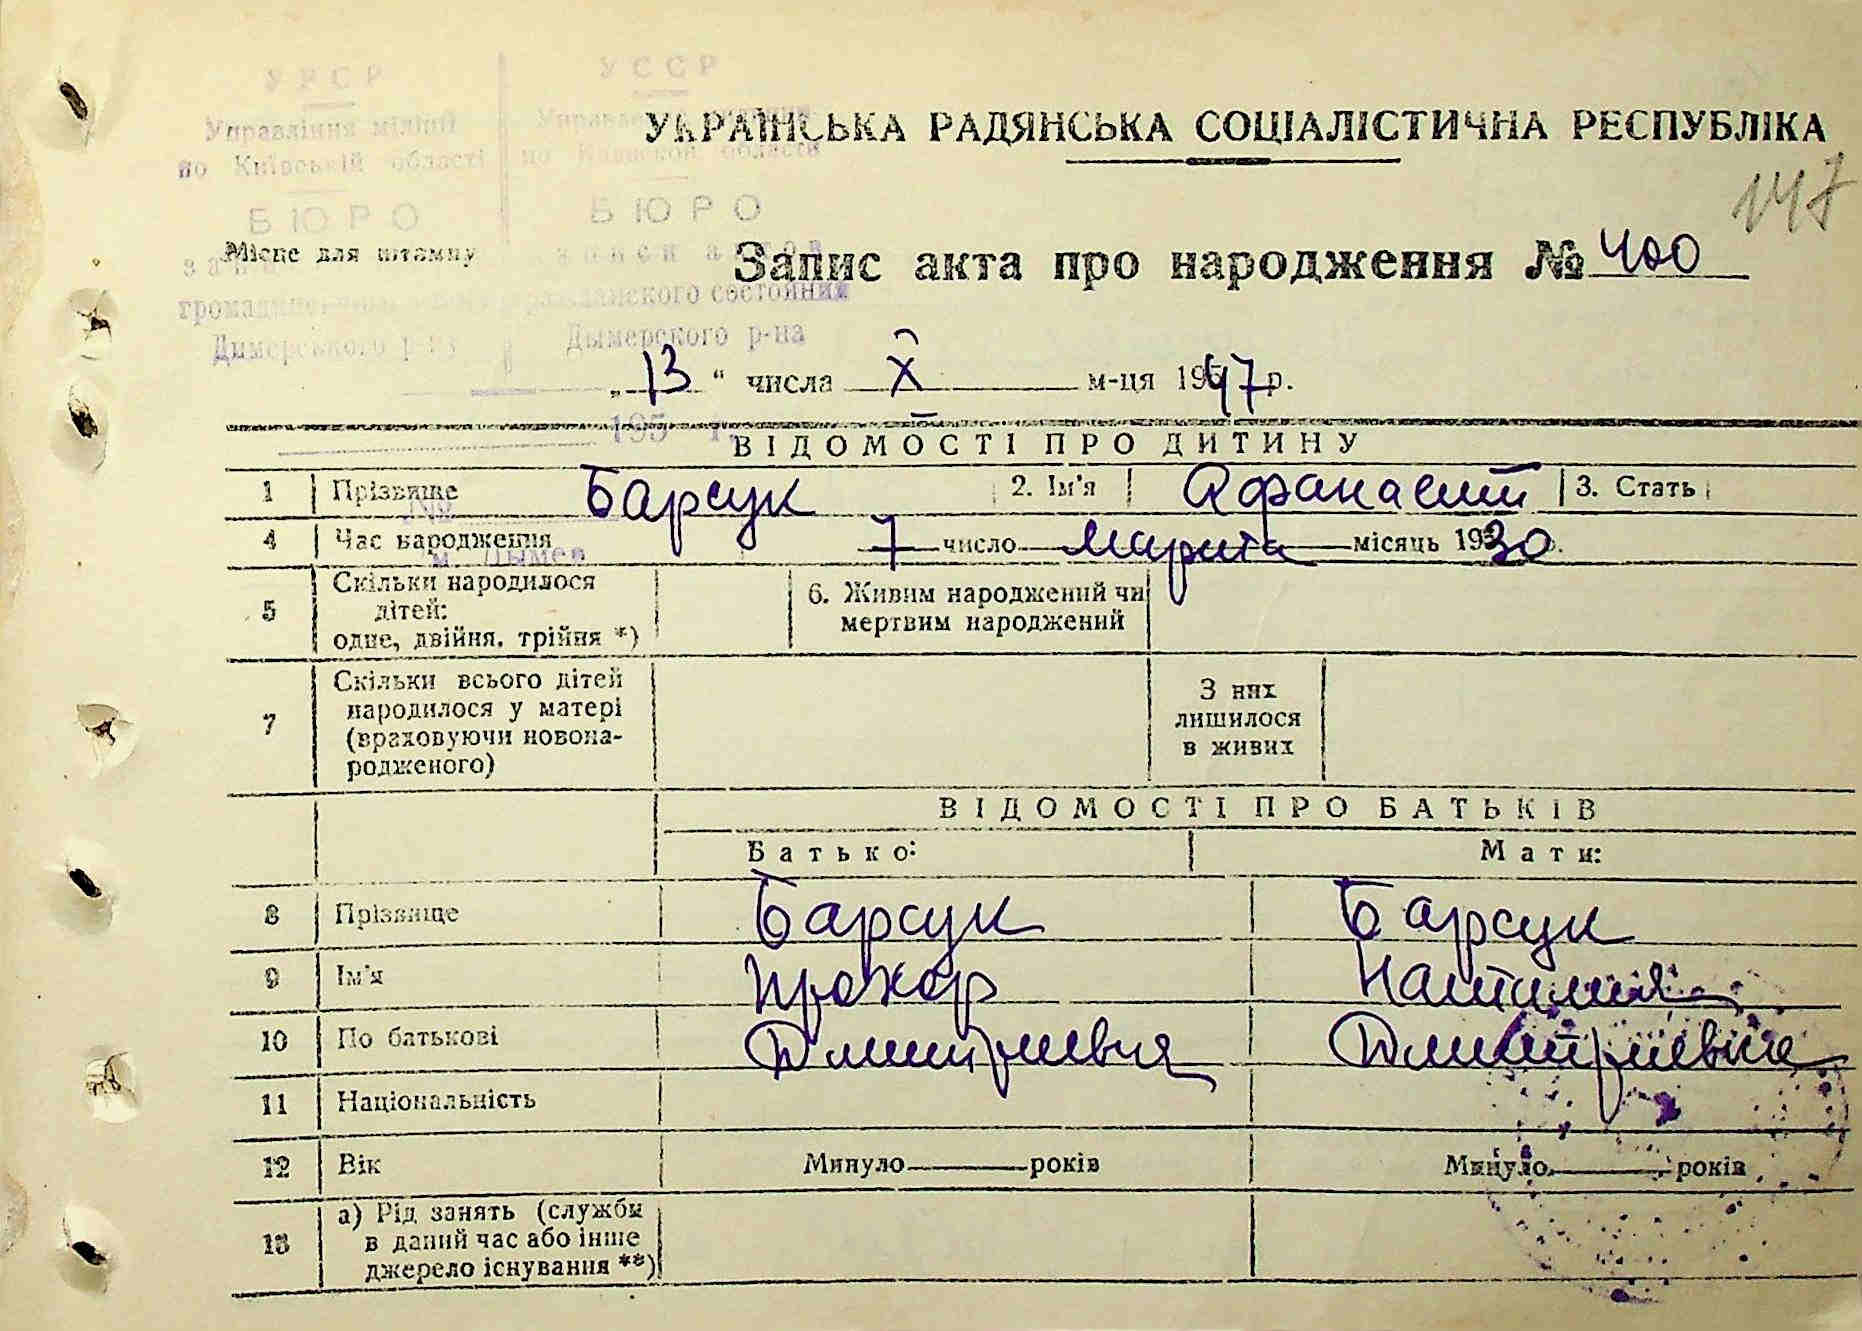 УРСР
УССР
Управління міліції
по Київській області
по Киевской области
БЮРО
БЮРО
Місце для штампу
гражданского состояния
Димерського р-ну
Дымерского р-на
195 г.
№
м. Дымер
УКРАЇНСЬКА РАДЯНСЬКА СОЦІАЛІСТИЧНА РЕСПУБЛІКА
147
Запис акта про народження № 400
„ 13 “ числа X м-ця 1947 р.
ВІДОМОСТІ ПРО ДИТИНУ
1 Прізвище Барсук 2. Ім'я Афанасий 3. Стать
4 Час народження 7 число Марта місяць 1930 р.
5 Скільки народилося дітей: одне, двійня, трійня *) 6. Живим народжений чи мертвим народжений
7 Скільки всього дітей народилося у матері (враховуючи новонародженого) З них лишилося в живих
ВІДОМОСТІ ПРО БАТЬКІВ
Батько: Мати:
8 Прізвище Барсук Барсук
9 Ім'я Прохор Наталия
10 По батькові Дмитриевич Дмитриевна
11 Національність
12 Вік Минуло років Минуло років
13 а) Рід занять (службы в даний час або інше джерело існування **)